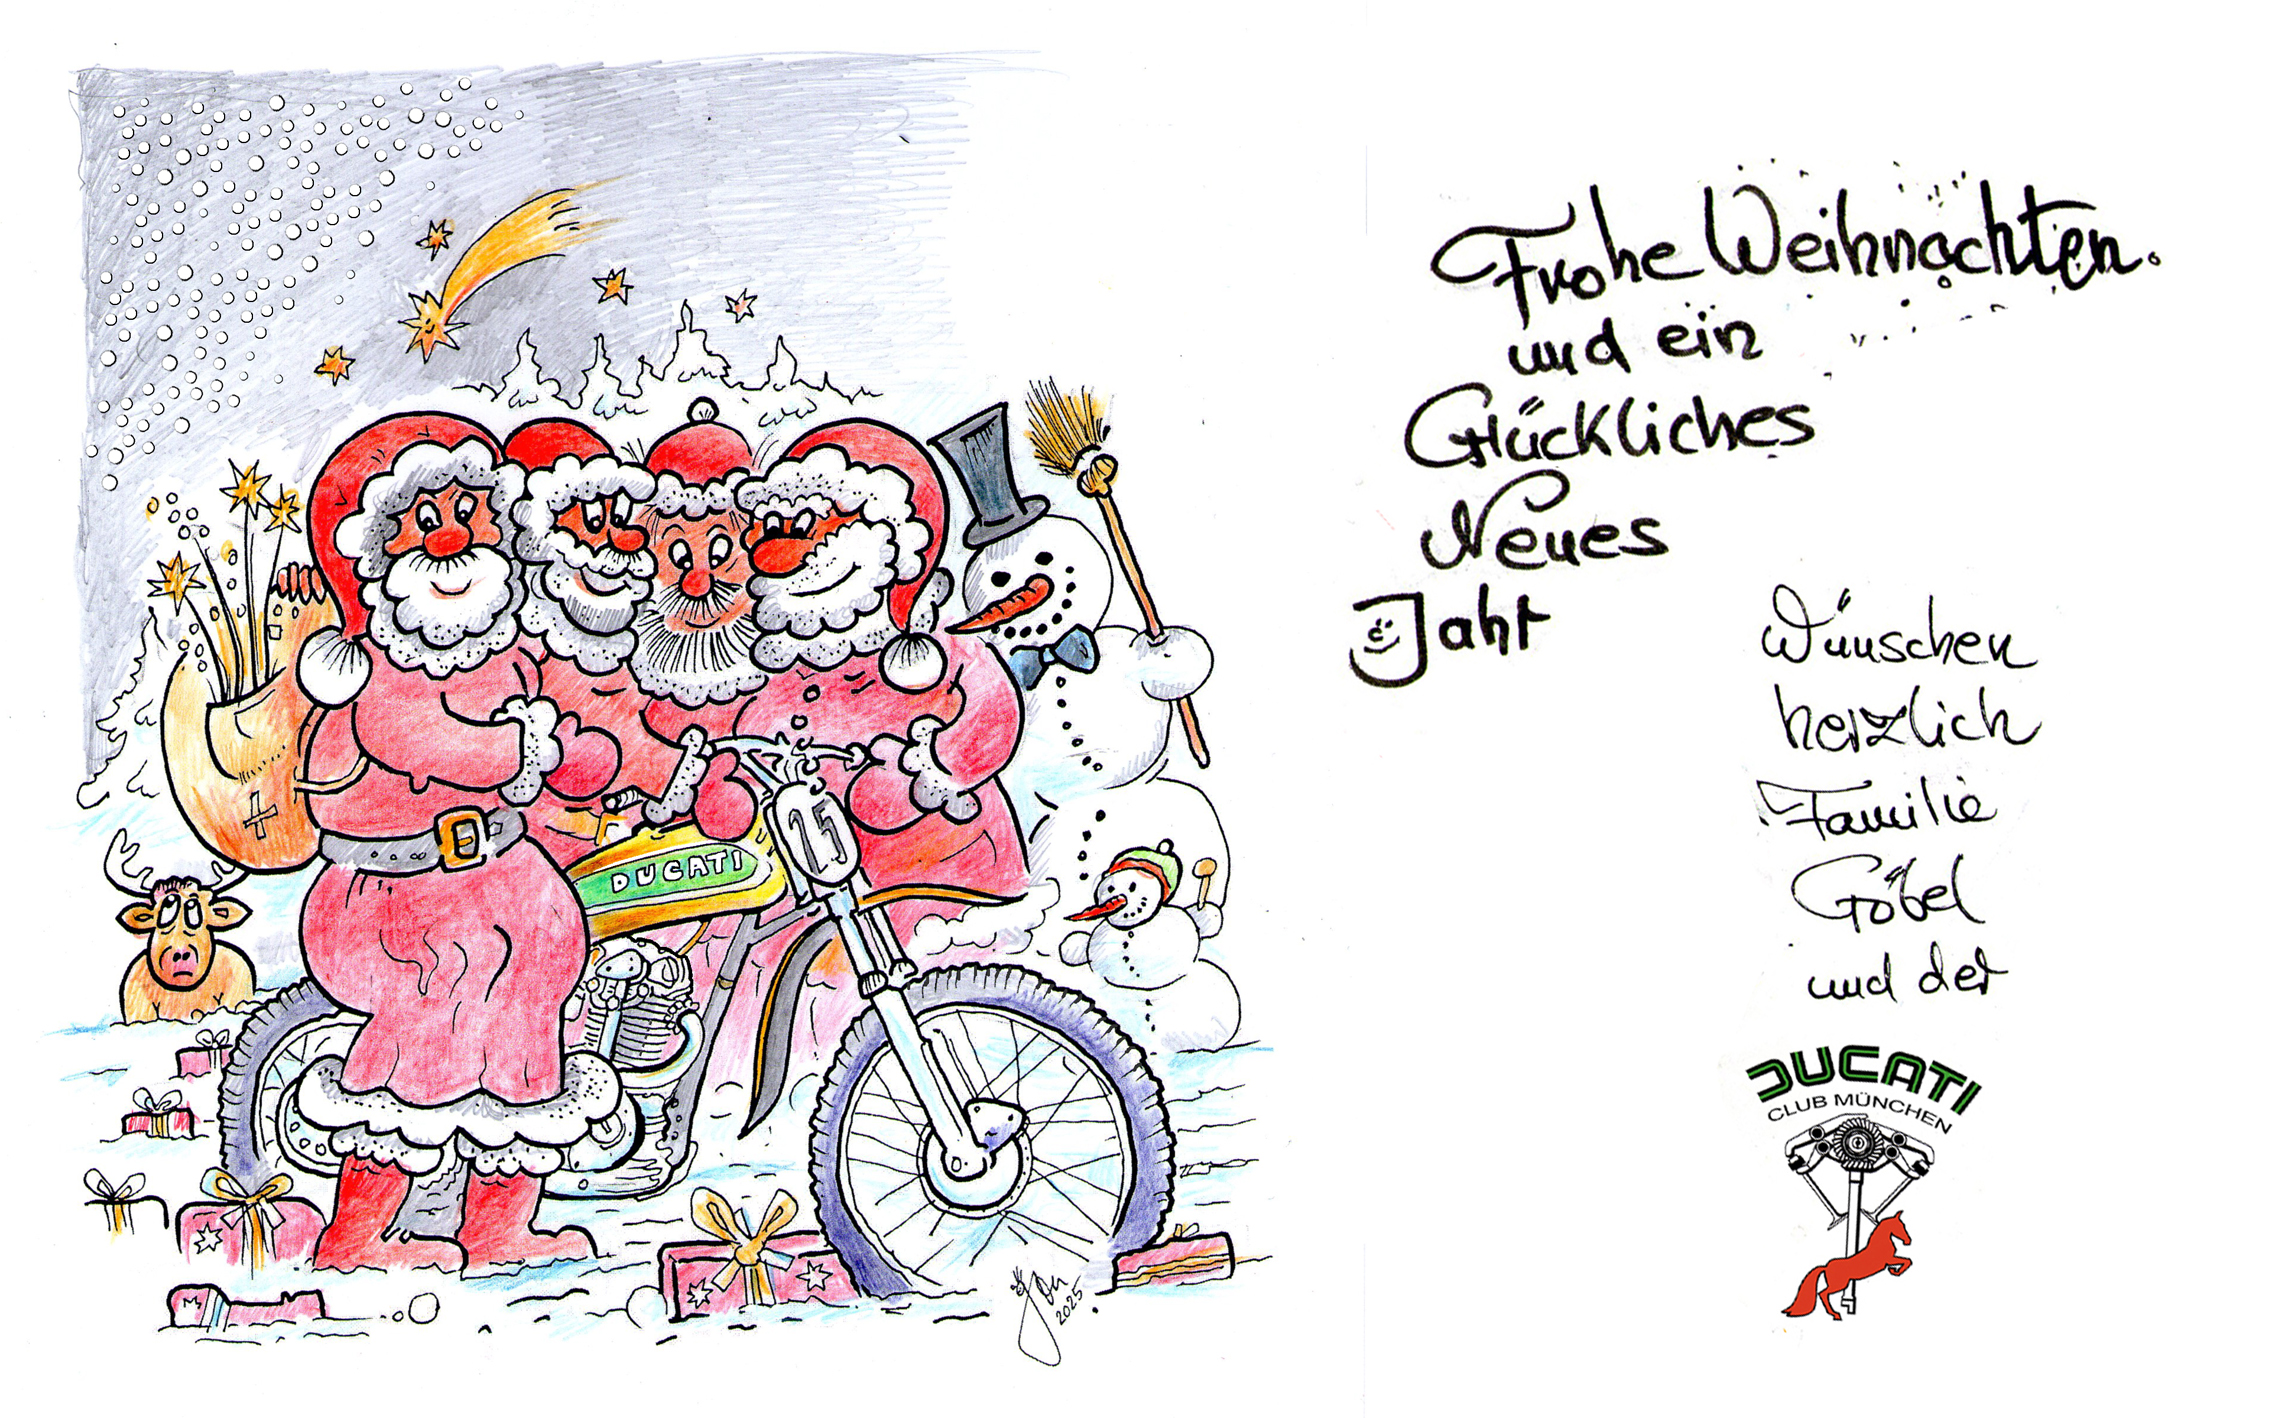 DUCATI
25
2025
Frohe Weihnachten.
und ein
Glückliches
Neues
Jahr
Wünschen
herzlich
Familie
Göbel
und der
DUCATI
CLUB MÜNCHEN